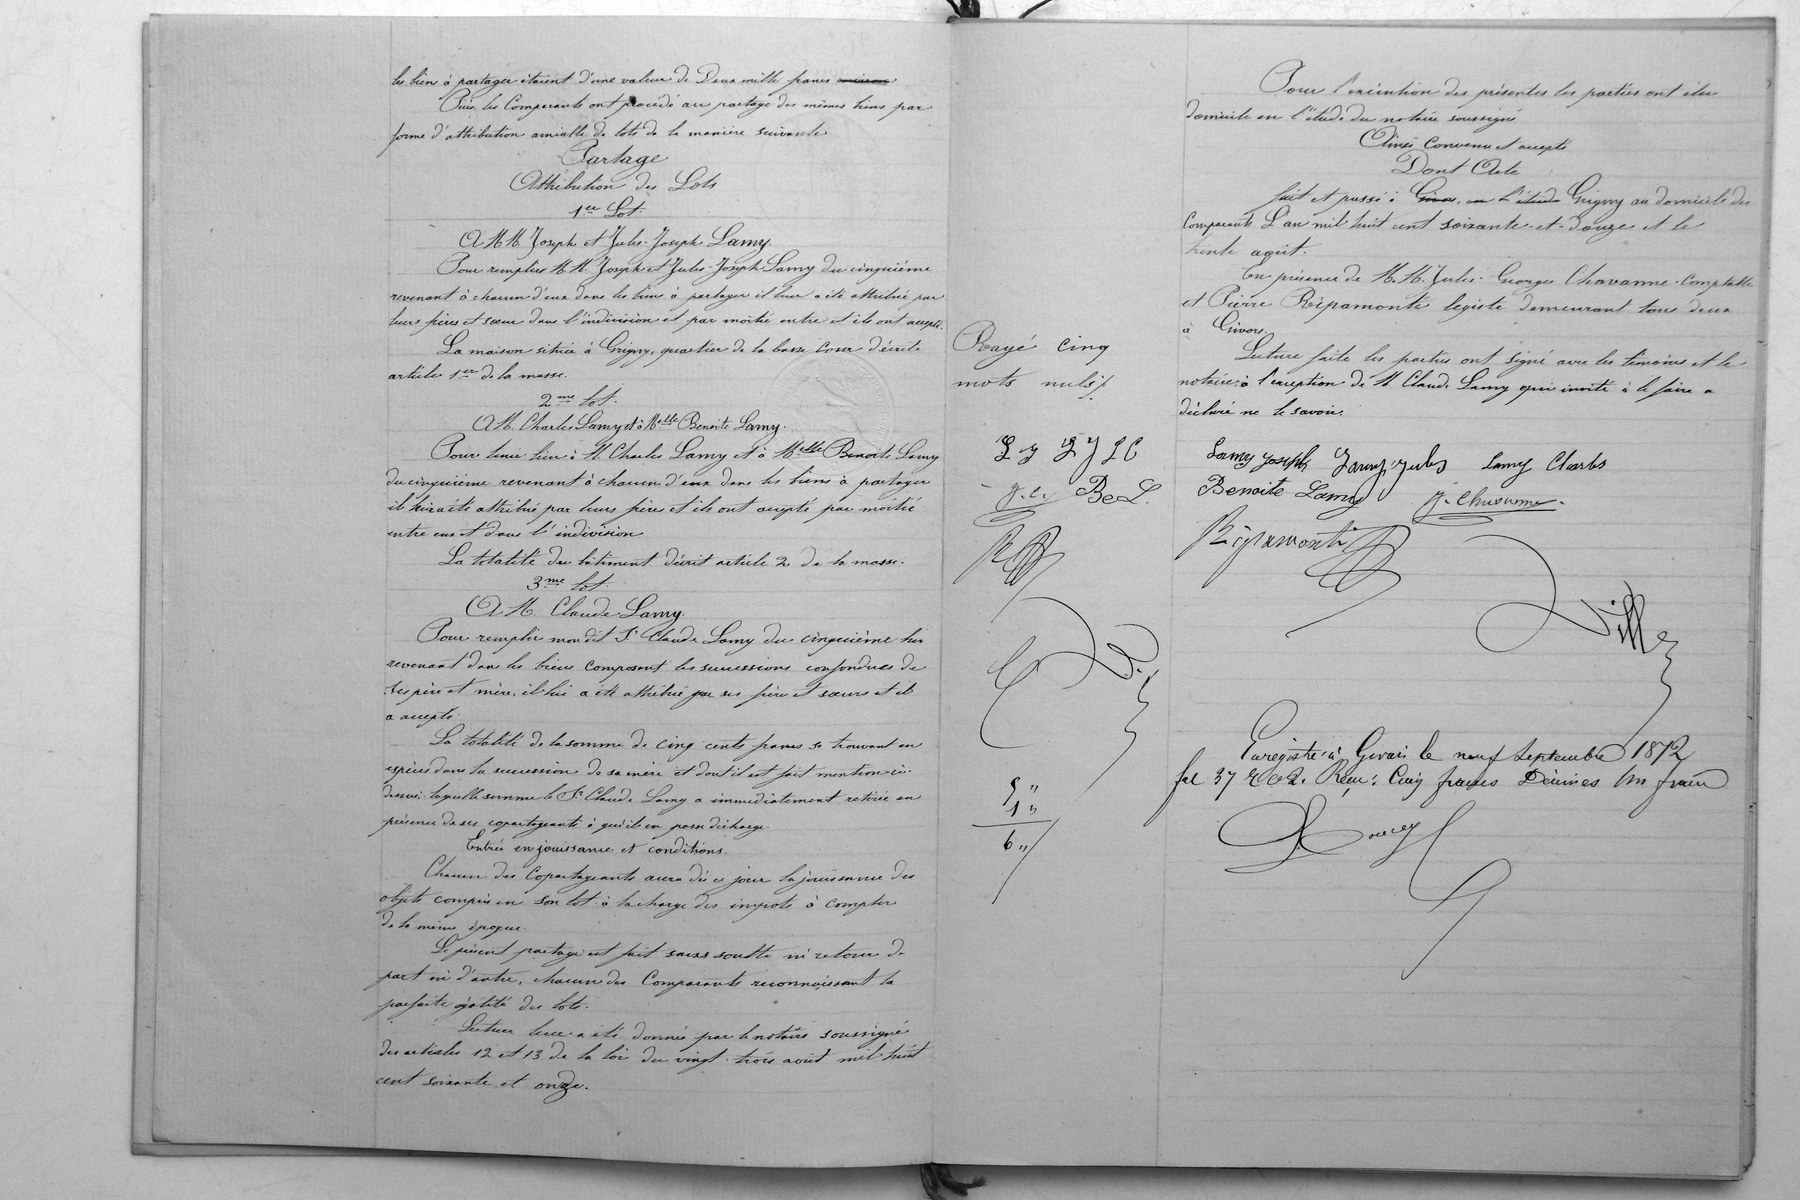 les biens à partager étaient d'une valeur de Deux mille francs
Puis les Comparants ont procédé au partage des mêmes biens par
forme d'attribution amiable de lots de la manière suivante
Partage
Attribution des Lots
1er Lot.
A MM. Joseph et Jules-Joseph Lamy.
Pour remplir M.M. Joseph et Jules-Joseph Lamy du cinquième
revenant à chacun d'eux dans les biens à partager il leur a été attribué par
leurs frères et sœur dans l'indivision et par moitié entre et ils ont accepté.
La maison située à Grigny, quartier de la basse Cour décrite
article 1er de la masse.
2me lot.
A M. Charles Lamy et à Melle Benoite Lamy.
Pour tenir lieu à M. Charles Lamy et à Melle Benoite Lamy
du cinquième revenant à chacun d'eux dans les biens à partager
il leur a été attribué par leurs frères et ils ont accepté par moitié
entre eux et dans l'indivision
La totalité du bâtiment décrit article 2 de la masse.
3me lot
A M. Claude Lamy.
Pour remplir mondit Sr Claude Lamy du cinquième lui
revenant dans les biens composant les successions confondues de
ses père et mère, il lui a été attribué par ses frère et sœurs et il
a accepté
La totalité de la somme de cinq cents francs se trouvant en
espèces dans la succession de sa mère et dont il est fait mention ci-
dessus; laquelle somme le Sr Claude Lamy a immédiatement retirée en
présence de ses copartageants à qui il en passe décharge.
Entrée en jouissance et conditions.
Chacun des Copartageants aura dès ce jour la jouissance des
objets compris en son lot à la charge des impots à compter
de la même époque.
Le présent partage est fait sans soulte ni retour de
part ni d'autre, chacun des Comparants reconnaissant la
parfaite égalité des lots.
Lecture leur a été donnée par le notaire soussigné
des articles 12 et 13 de la loi du vingt-trois août mil huit
cent soixante et onze.
Rayé cinq
mots nuls
L J L J L C
J. C. Be L.
R
5 "
1 "
6 "
Pour l'exécution des présentes les parties ont élu
domicile en l'étude du notaire soussigné
Ainsi Convenu et accepté
Dont Acte
fait et passé à Givors, en l'étude Grigny au domicile des
Comparants L'an mil huit cent soixante-et-douze et le
trente août.
En présence de M.M. Jules-Georges Chavanne Comptable
et Pierre Ripamonti légiste demeurant tous deux
à Givors.
Lecture faite les parties ont signé avec les témoins et le
notaire; à l'exception de M. Claude Lamy qui invité à le faire a
déclaré ne le savoir.
Lamy Joseph Lamy Jules Lamy Charles
Benoite Lamy J. Chavanne
Ripamonti
Ville
Enregistré à Givors le neuf Septembre 1872
fol 37 Reçu: Cinq francs Décimes Un franc